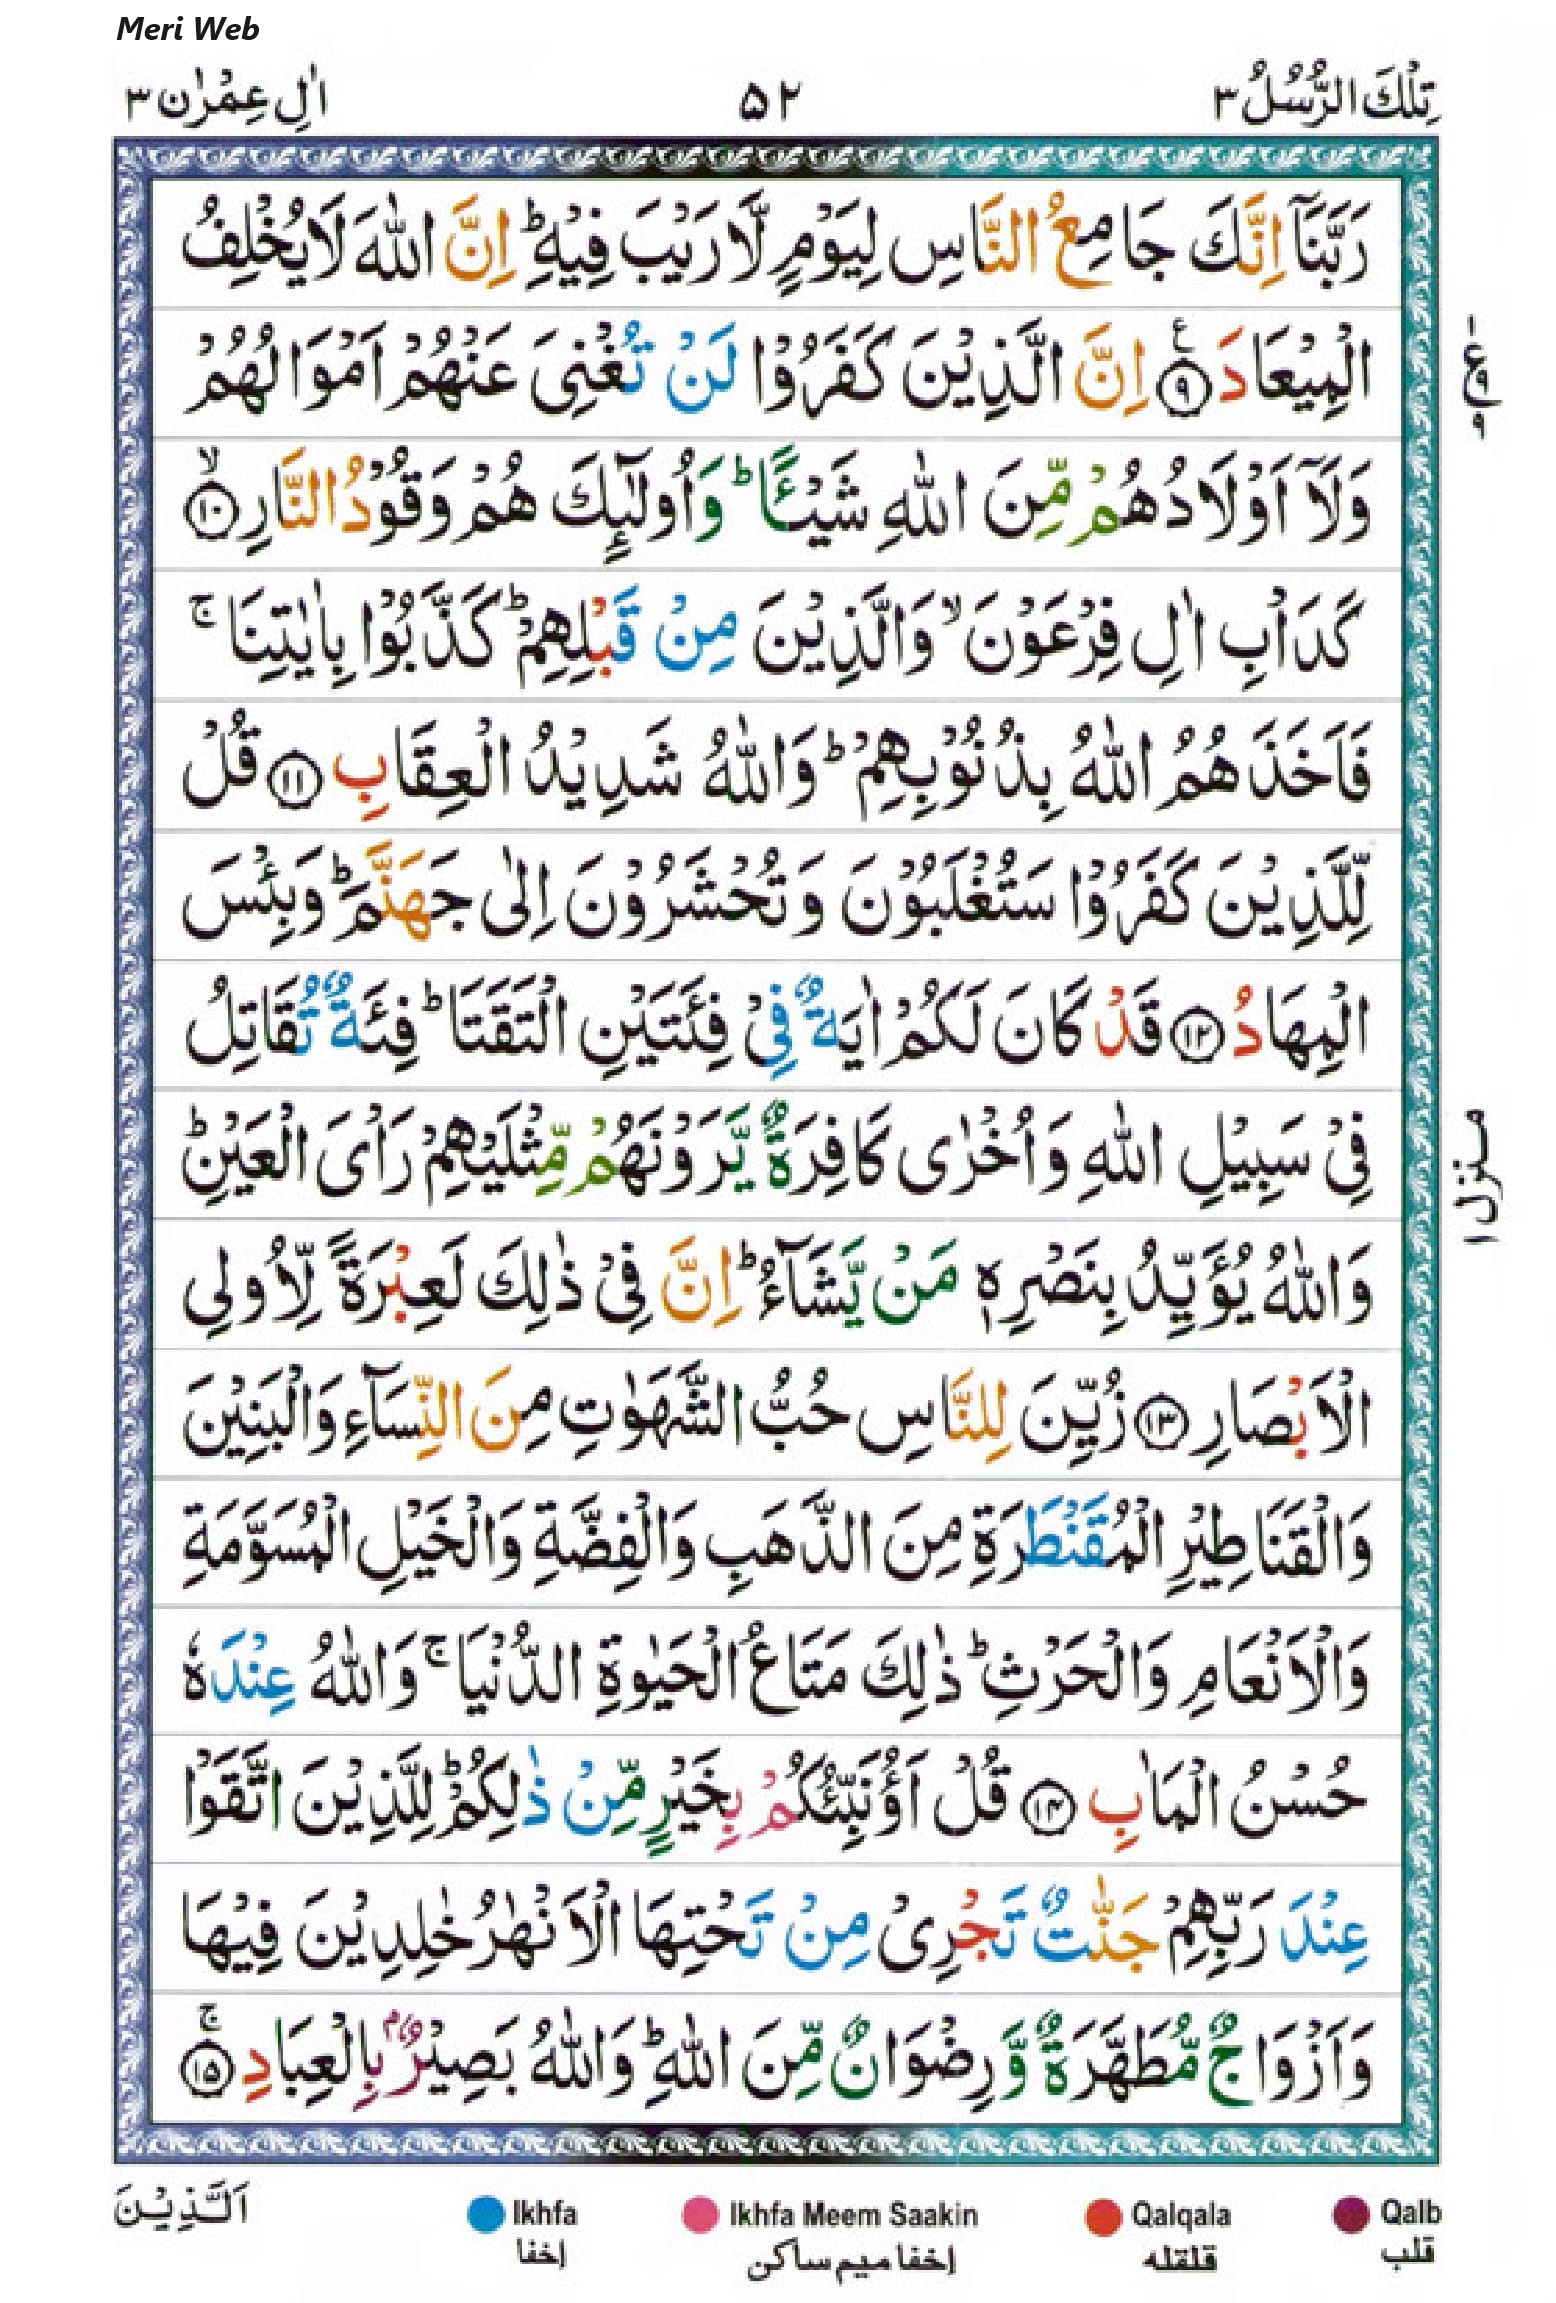 Meri Web
تِلْكَ الرُّسُلُ ٣
۵۲
اٰلِ عِمْرٰن ٣
رَبَّنَاۤ اِنَّكَ جَامِعُ النَّاسِ لِيَوْمٍ لَّا رَيْبَ فِيْهِ ؕ اِنَّ اللّٰهَ لَا يُخْلِفُ
الْمِيْعَادَ ۹ ع اِنَّ الَّذِيْنَ كَفَرُوْا لَنْ تُغْنِىَ عَنْهُمْ اَمْوَالُهُمْ
ع ۹ ۹
وَلَاۤ اَوْلَادُهُمْ مِّنَ اللّٰهِ شَيْـًٔا ؕ وَاُولٰٓئِكَ هُمْ وَقُوْدُ النَّارِ ۙ ۱۰
كَدَاْبِ اٰلِ فِرْعَوْنَ ۙ وَالَّذِيْنَ مِنْ قَبْلِهِمْ ؕ كَذَّبُوْا بِاٰيٰتِنَا ۚ
فَاَخَذَهُمُ اللّٰهُ بِذُنُوْبِهِمْ ؕ وَاللّٰهُ شَدِيْدُ الْعِقَابِ ۱۱ قُلْ
لِّلَّذِيْنَ كَفَرُوْا سَتُغْلَبُوْنَ وَتُحْشَرُوْنَ اِلٰى جَهَنَّمَ ؕ وَبِئْسَ
الْمِهَادُ ۱۲ قَدْ كَانَ لَكُمْ اٰيَةٌ فِىْ فِئَتَيْنِ الْتَقَتَا ؕ فِئَةٌ تُقَاتِلُ
فِىْ سَبِيْلِ اللّٰهِ وَاُخْرٰى كَافِرَةٌ يَّرَوْنَهُمْ مِّثْلَيْهِمْ رَاْىَ الْعَيْنِ ؕ
منزل ۱
وَاللّٰهُ يُؤَيِّدُ بِنَصْرِهٖ مَنْ يَّشَآءُ ؕ اِنَّ فِىْ ذٰلِكَ لَعِبْرَةً لِّاُولِى
الْاَبْصَارِ ۱۳ زُيِّنَ لِلنَّاسِ حُبُّ الشَّهَوٰتِ مِنَ النِّسَآءِ وَالْبَنِيْنَ
وَالْقَنَاطِيْرِ الْمُقَنْطَرَةِ مِنَ الذَّهَبِ وَالْفِضَّةِ وَالْخَيْلِ الْمُسَوَّمَةِ
وَالْاَنْعَامِ وَالْحَرْثِ ؕ ذٰلِكَ مَتَاعُ الْحَيٰوةِ الدُّنْيَا ۚ وَاللّٰهُ عِنْدَهٗ
حُسْنُ الْمَاٰبِ ۱۴ قُلْ اَؤُنَبِّئُكُمْ بِخَيْرٍ مِّنْ ذٰلِكُمْ ؕ لِلَّذِيْنَ اتَّقَوْا
عِنْدَ رَبِّهِمْ جَنّٰتٌ تَجْرِىْ مِنْ تَحْتِهَا الْاَنْهٰرُ خٰلِدِيْنَ فِيْهَا
وَاَزْوَاجٌ مُّطَهَّرَةٌ وَّرِضْوَانٌ مِّنَ اللّٰهِ ؕ وَاللّٰهُ بَصِيْرٌۢ بِالْعِبَادِ ۚ ۱۵
اَلَّذِيْنَ
Ikhfa Ikhfa Meem Saakin Qalqala Qalb
إخفا إخفا ميم ساكن قلقله قلب